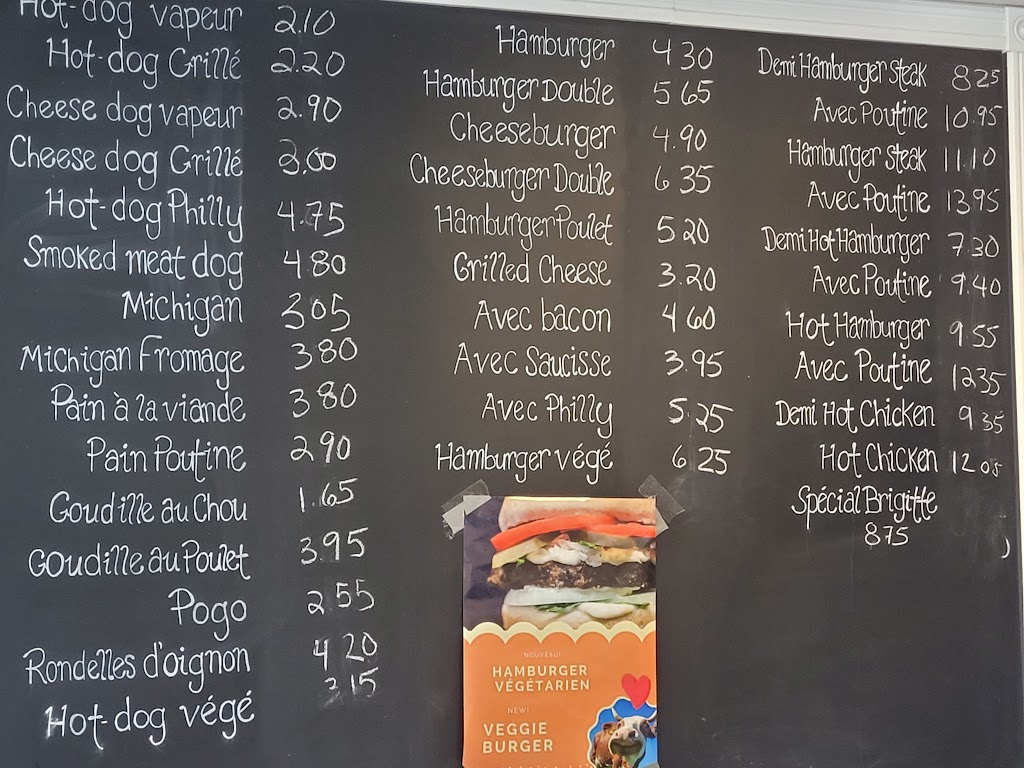 Hot-dog vapeur 2.10
Hot-dog Grillé 2.20
Cheese dog vapeur 2.90
Cheese dog Grillé 3.00
Hot-dog Philly 4.75
Smoked meat dog 4.80
Michigan 3.05
Michigan Fromage 3.80
Pain à la viande 3.80
Pain Poutine 2.90
Goudille au Chou 1.65
Goudille au Poulet 3.95
Pogo 2.55
Rondelles d'oignon 4.20
Hot-dog végé 3.15
Hamburger 4 30
Hamburger Double 5 65
Cheeseburger 4.90
Cheeseburger Double 6 35
Hamburger Poulet 5 20
Grilled Cheese 3.20
Avec bacon 4 60
Avec Saucisse 3.95
Avec Philly 5.25
Hamburger végé 6 25
Demi Hamburger steak 8 25
Avec Poutine 10.95
Hamburger steak 11.10
Avec Poutine 13 95
Demi Hot Hamburger 7.30
Avec Poutine 9.40
Hot Hamburger 9.55
Avec Poutine 12 35
Demi Hot Chicken 9.35
Hot Chicken 12 05
Spécial Brigitte
8.75
NOUVEAU!
HAMBURGER
VÉGÉTARIEN
NEW!
VEGGIE
BURGER